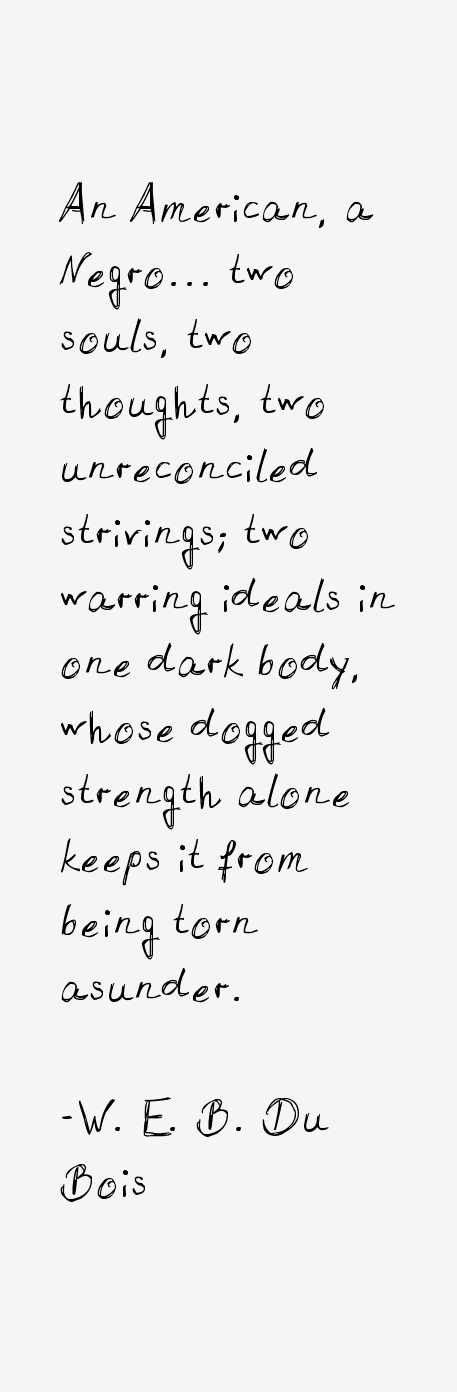 An American, a
Negro... two
souls, two
thoughts, two
unreconciled
strivings; two
warring ideals in
one dark body,
whose dogged
strength alone
keeps it from
being torn
asunder.
-W. E. B. Du
Bois